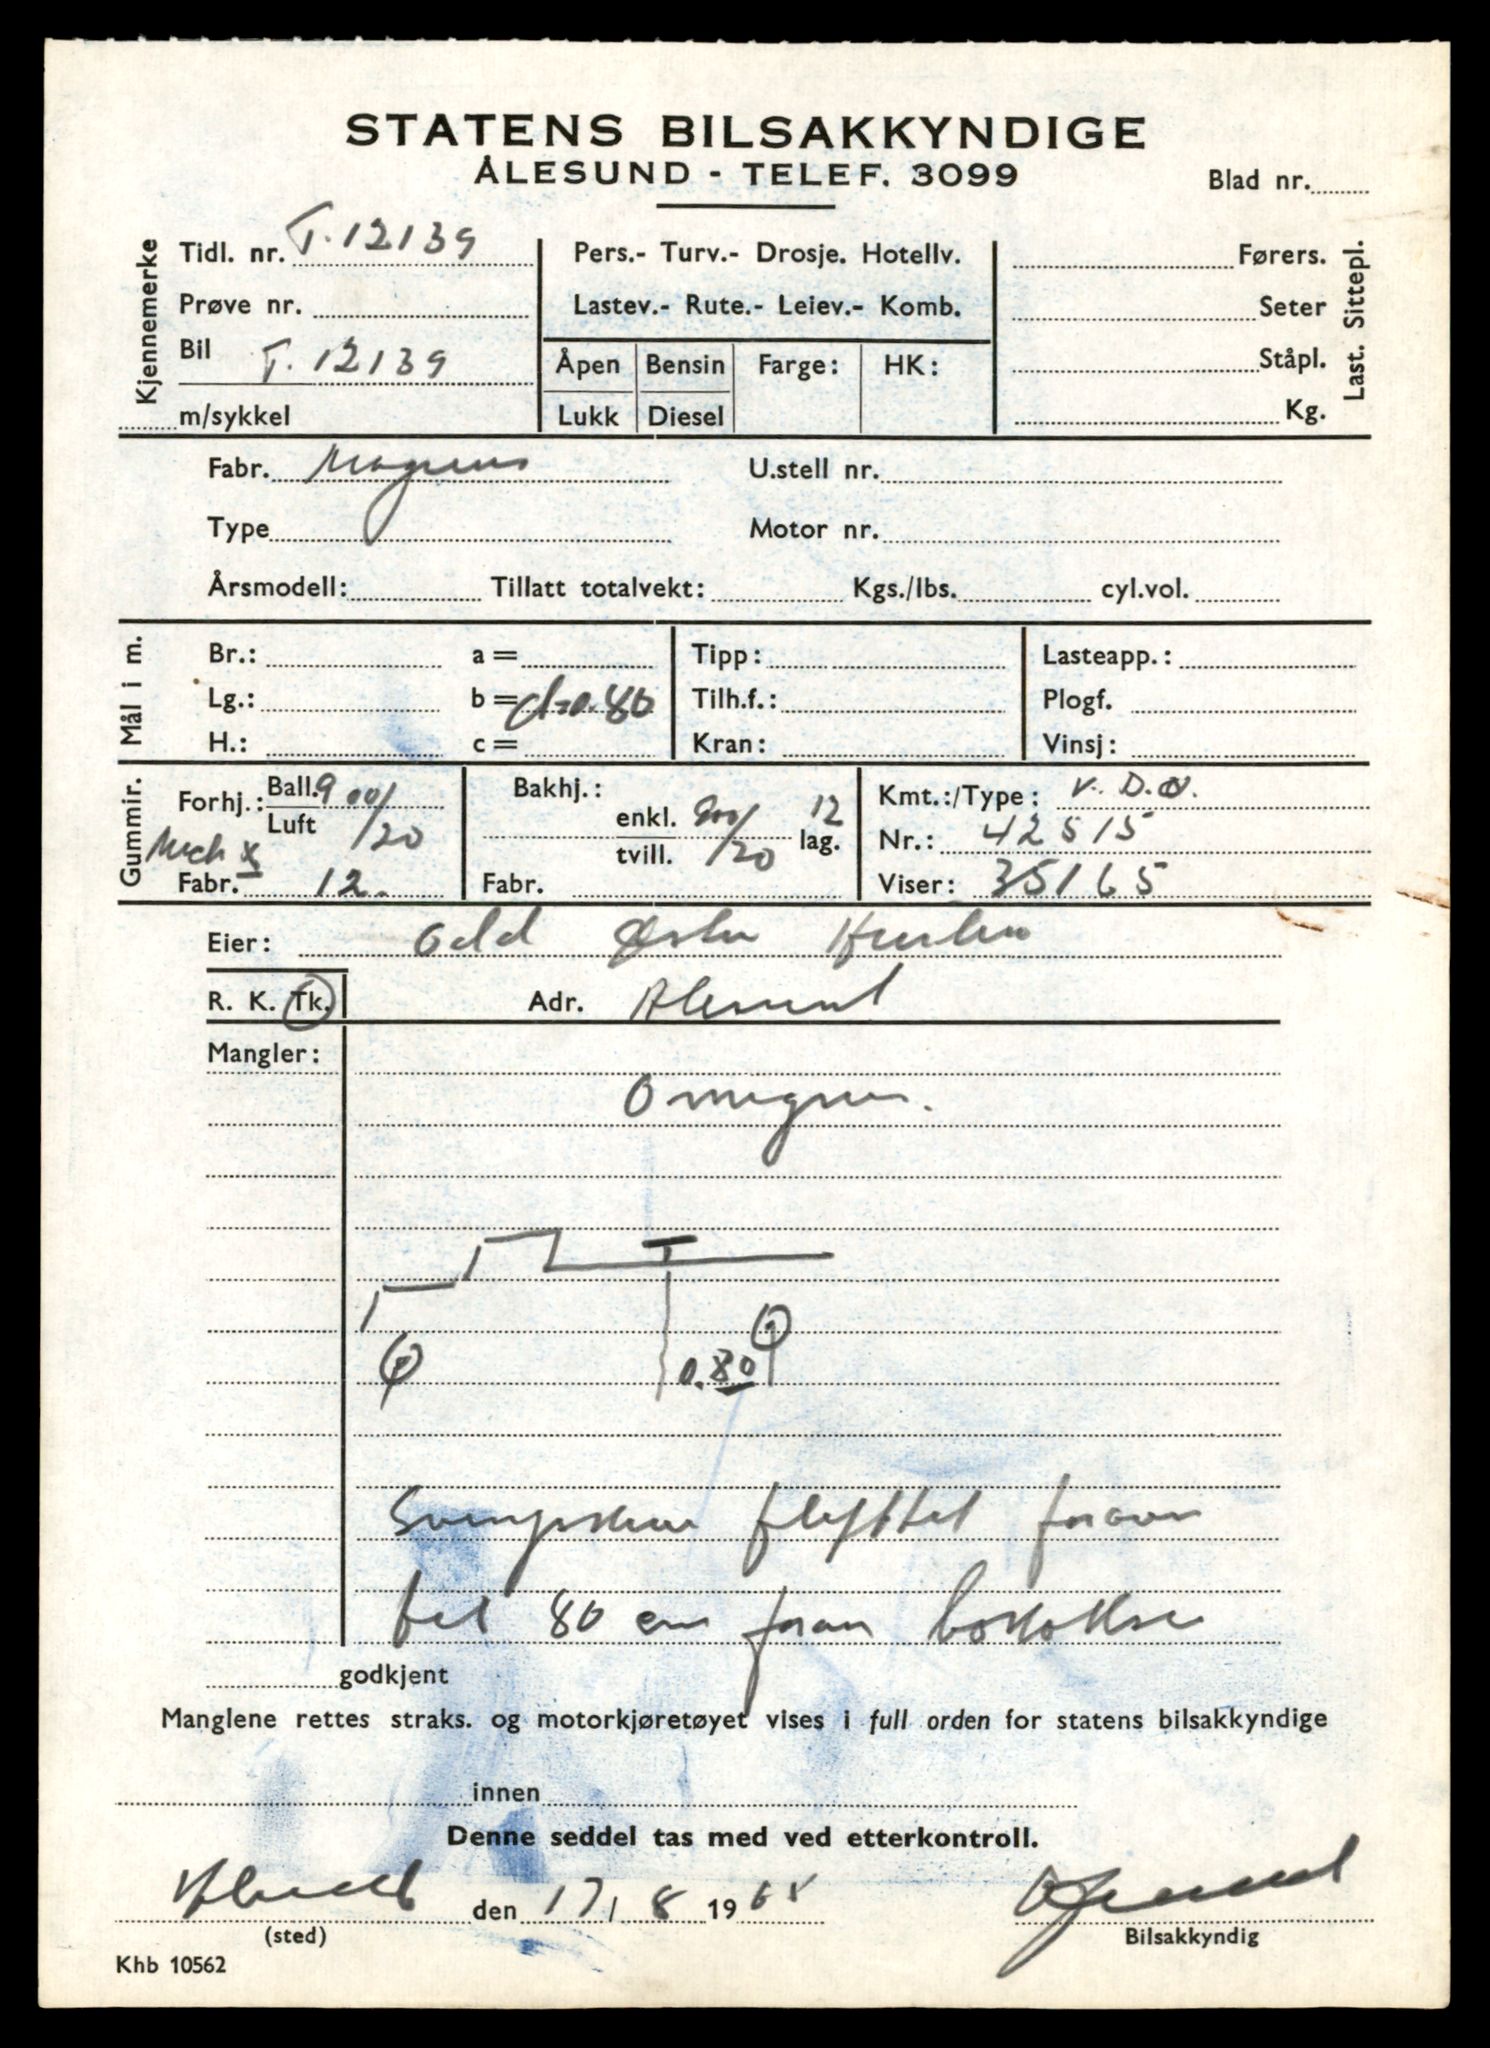 STATENS BILSAKKYNDIGE
ÅLESUND - TELEF. 3099
Blad nr.
Kjennemerke
Tidl. nr. T. 12139
Prøve nr.
Bil T. 12139
m/sykkel
Pers.- Turv.- Drosje. Hotellv.
Lastev.- Rute.- Leiev.- Komb.
Åpen Bensin Farge: HK:
Lukk Diesel
Førers.
Seter
Ståpl.
Kg.
Last. Sittepl.
Fabr. Magirus
U.stell nr.
Type
Motor nr.
Årsmodell: Tillatt totalvekt: Kgs./lbs. cyl.vol.
Mål i m.
Br.: a = Tipp: Lasteapp.:
Lg.: b = d=0.80 Tilh.f.: Plogf.
H.: c = Kran: Vinsj:
Gummir.
Forhj.: Ball. Luft 900/20
Mich x
Fabr. 12.
Bakhj.: enkl. tvill. 900/20 12 lag.
Fabr.
Kmt.:/Type: V.D.O.
Nr.: 42515
Viser: 35165
Eier: Odd
R. K. Tk. Adr. Ålesund
Mangler:
Omregner.
0.80
flyttet foran
80 cm foran
godkjent
Manglene rettes straks. og motorkjøretøyet vises i full orden for statens bilsakkyndige
innen
Denne seddel tas med ved etterkontroll.
Ålesund den 17/8 196
(sted)
Bilsakkyndig
Khb 10562